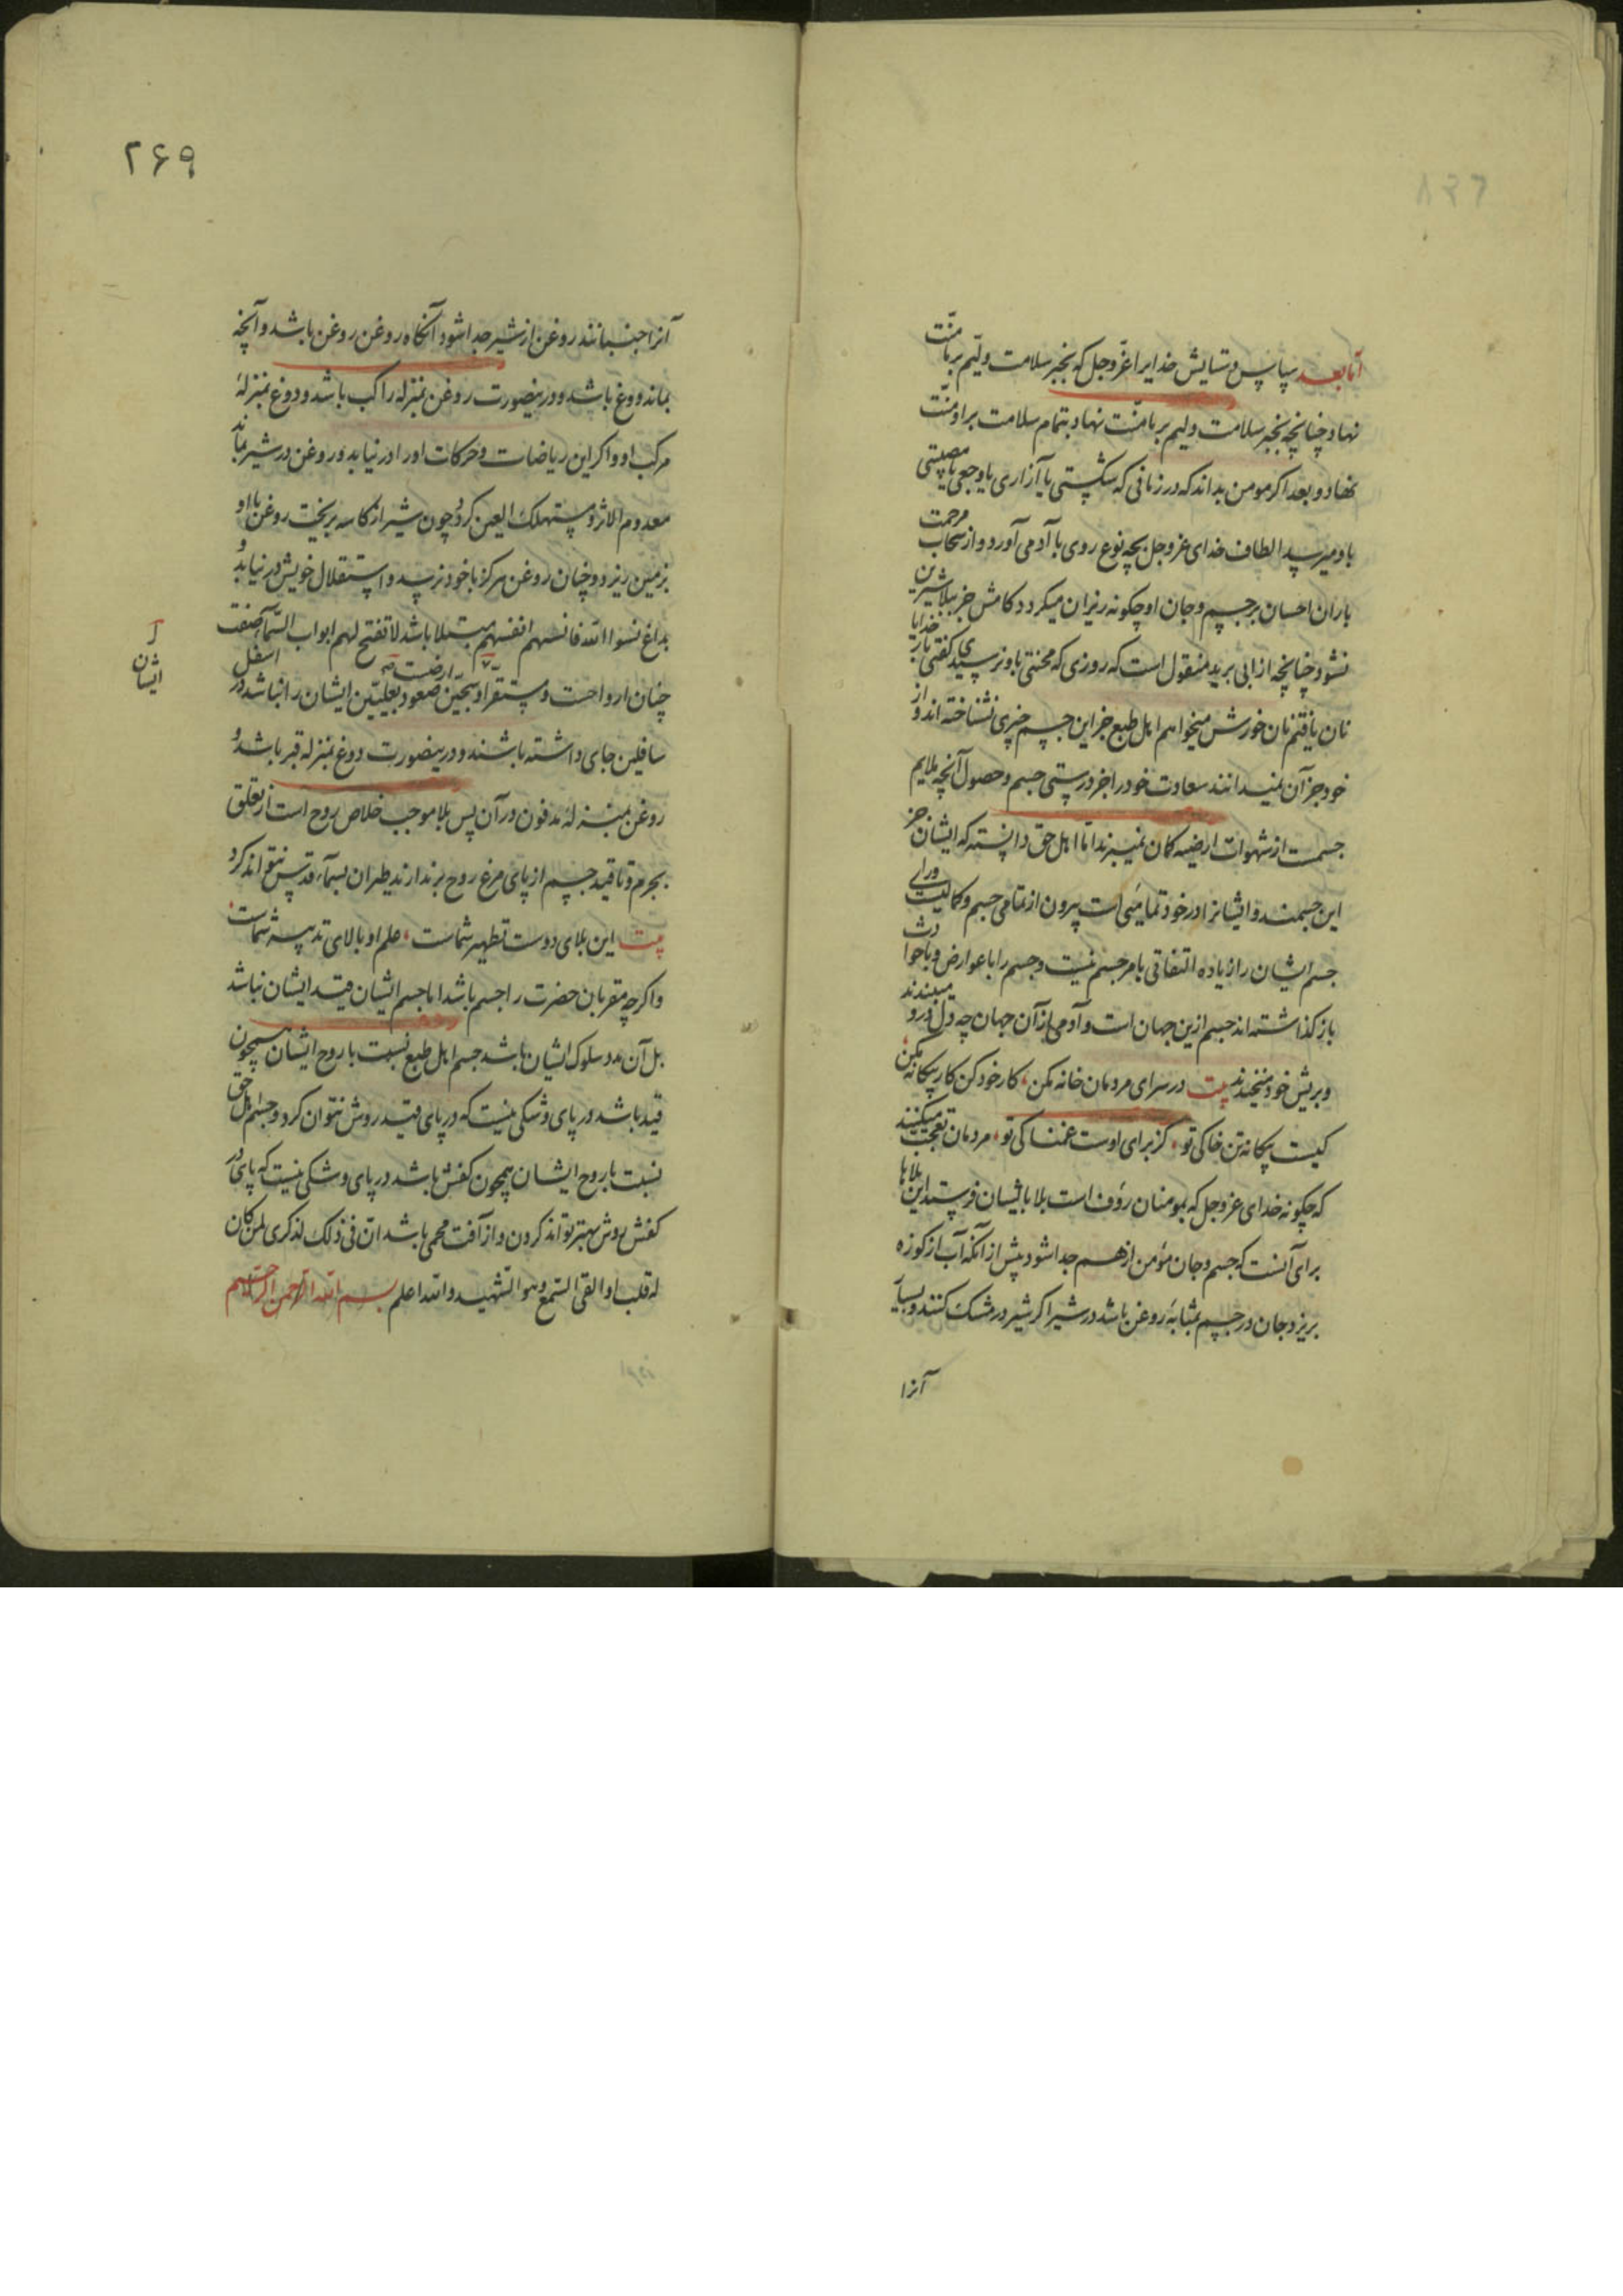 اما بعد سپاس و ستایش خدایرا عزّ و جل که بخبر سلامت ولیم بر ما منّت
نهاد چنانچه بخبر سلامت ولیم بر ما منّت نهاد بتمام سلامت بر او منّت
نهاد و بعد اگر مومن بداند که در زمانی که شکستی یا آزاری یا وجعی یا مصیبتی
باو میرسد الطاف خدای عز و جل بچه نوع روی با آدمی آورد و از سحاب مرحمت
باران احسان بر جسم و جان او چگونه ریزان میکردد کامش جز ببلا شیرین
نشود چنانچه از ابی یزید منقول است که روزی که محنتی باو نرسیدی کفتی بار خدایا
نان یافتم نان خورش میخواهم اهل طبع جز این جسم چیزی نشناخته اند و از
خود جز آن نمیدانند سعادت خود را جز درستی جسم و حصول آنچه ملایم
جسمست از شهوات ارضیه کمان نمیبرند امّا اهل حق دانسته که ایشان جز
این جسمند و ایشانرا در خود تمامیی است بیرون از تمامی جسم و کمالیت ورای
جسم ایشان را زیاده التفاتی بامر جسم نیست و جسم را با عوارض و با حوادث
باز کذاشته اند جسم ازین جهان است و آدمی از آن جهان چه دل درو میبندند
و بریش خود میخندند بیت در سرای مردمان خانه مکن کار خود کن کار بیکانه مکن
کیست بیکانه تن خاکی تو کز برای اوست غمناکی تو مردمان تعجب میکنند
که چکونه خدای عز و جل که بمومنان رؤف است بلا باایشان فرستد این بلاها
برای آنست که جسم و جان مؤمن از هم جدا شود پیش از آنکه آب از کوزه
بریزد جان در جسم بمثابهٔ روغن باشد در شیر اکر شیر در مشک کنند و بسیار
آنرا
۲۶۹
آنرا جنبانند روغن از شیر جدا شود آنکاه روغن روغن باشد و آنچه
بماند دوغ باشد و درینصورت روغن بمنزله راکب باشد و دوغ بمنزلهٔ
مرکب او و اکر این ریاضات و حرکات اورا در نیابد و روغن در شیر بماند
معدوم الاثر و مستهلک العین کردد چون شیر از کاسه بریخت روغن با او
بزمین ریزد و چنان روغن هرکز باخود نرسد و استقلال خویش در نیابد و
بداغ نسوا الله فانسهم انفسهم مبتلا باشد لا تفتح لهم ابواب السّماء صفت
چنان ارواحست و مستقر او سجّین ارضیست صعود بعلیین ایشان را نباشد در اسفل
ایشان
سافلین جای داشته باشند و درینصورت دوغ بمنزله قبر باشد و
روغن بمنزلهٔ مدفون در آن پس بلا موجب خلاص روح است از تعلق
بجرم و تا قید جسم از پای مرغ روح بر ندارند طیران بسمآء قدس نتواند کرد
بیت این بلای دوست تطهیر شماست علم او بالای تدبیر شماست
و اکرچه مقربان حضرت را جسم باشد اما جسم ایشان قید ایشان نباشد
بل آن مدد سلوک ایشان باشد جسم اهل طبع نسبت با روح ایشان همچون
قید باشد در پای و شکی نیست که در پای قید روش نتوان کرد و جسم اهل حق
نسبت با روح ایشان همچون کفش باشد در پای و شکی نیست که پای در
کفش روش بهتر تواند کردن و از آفت محمی باشد انّ فی ذلک لذکری لمن کان
له قلب او القی السّمع و هو الشّهید و الله اعلم بسم الله الرحمن الرحیم